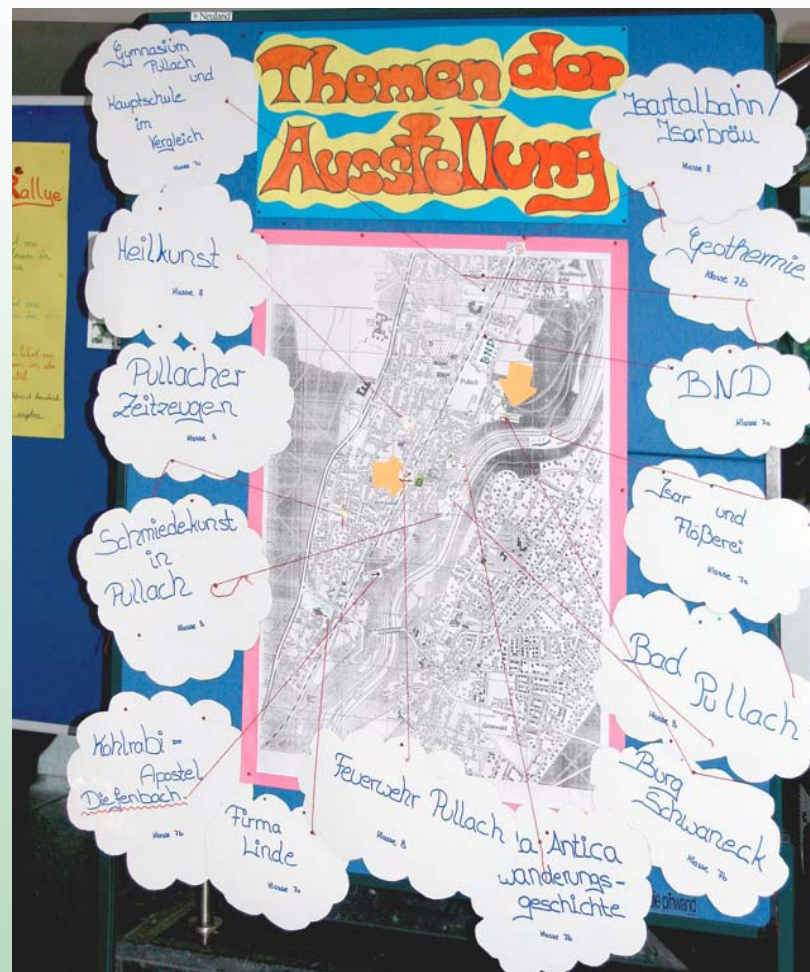 Neuland
Themen der
Ausstellung
Gymnasium
Pullach
und
Hauptschule
im
Vergleich
Klasse 7c
Heilkunst
Klasse 8
Pullacher
Zeitzeugen
Klasse 8
Schmiedekunst
in
Pullach
Klasse 8
Kohlrabi-
Apostel
Diefenbach
Klasse 7b
Firma
Linde
Klasse 7a
Feuerwehr Pullach
Klasse 8
Antica
wanderungs-
geschichte
Klasse 7b
Isartalbahn/
Isarbräu
Klasse 8
Geothermie
Klasse 7b
BND
Klasse 7a
Isar und
Flößerei
Klasse 7a
Bad
Pullach
Klasse 8
Burg
Schwaneck
Klasse 7b
BND
Pullach
Rallye
pinwand